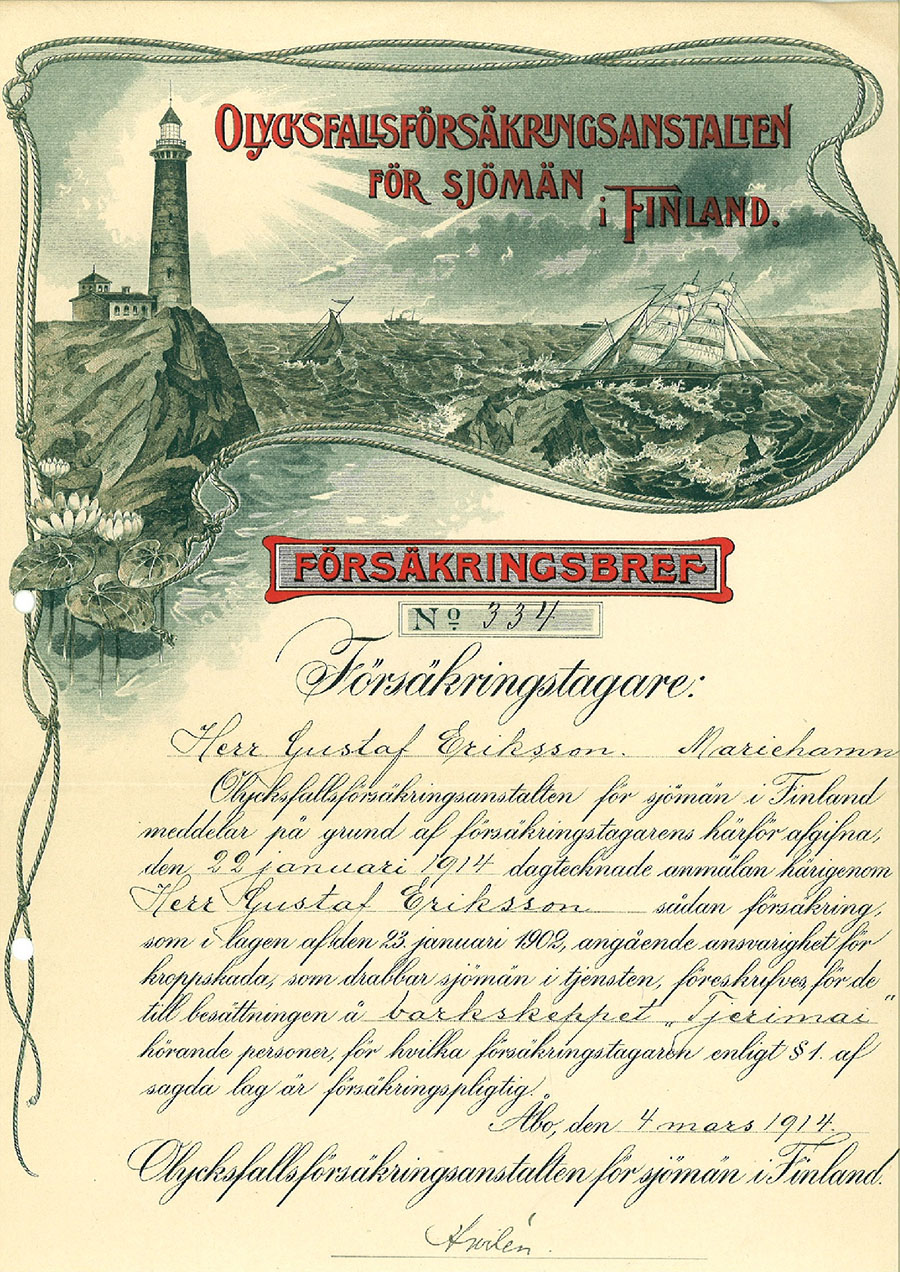 OLYCKSFALLSFÖRSÄKRINGSANSTALTEN
FÖR SJÖMÄN
i FINLAND.
FÖRSÄKRINGSBREF
No 334
Försäkringstagare:
Herr Gustaf Eriksson. Mariehamn
Olycksfallsförsäkringsanstalten för sjömän i Finland
meddelar på grund af försäkringstagarens härför afgifna,
den 22 januari 1914 dagtecknade anmälan härigenom
Herr Gustaf Eriksson sådan försäkring,
som i lagen af den 23 januari 1902, angående ansvarighet för
kroppskada, som drabbar sjömän i tjensten, föreskrifves, för de
till besättningen å barkskeppet „Tjerimai"
hörande personer, för hvilka försäkringstagaren enligt § 1. af
sagda lag är försäkringspligtig.
Åbo, den 4 mars 1914.
Olycksfallsförsäkringsanstalten för sjömän i Finland.